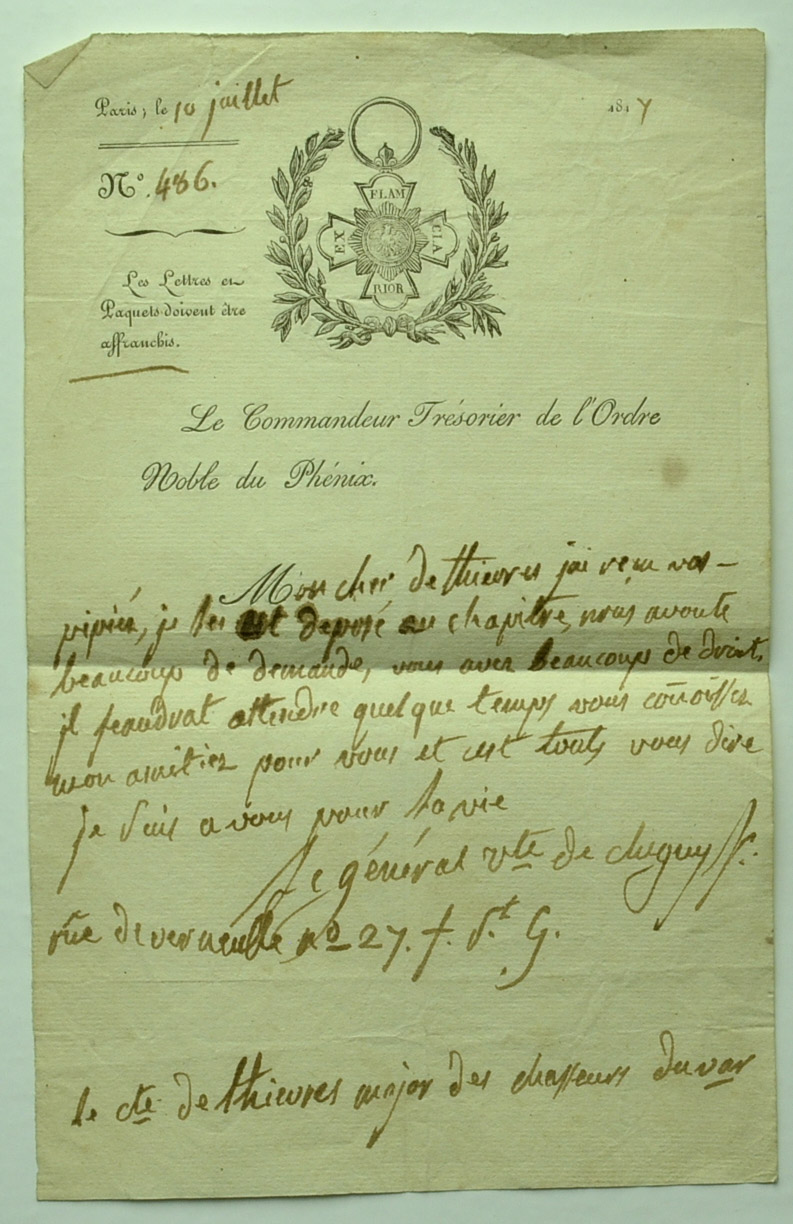 Paris, le 10 juillet 1817
N.º 486.
FLAM
EX CIA
RIOR
Les Lettres et
Paquets doivent être
affranchis.
Le Commandeur Trésorier de l'Ordre
Noble du Phénix.
Mon cher de thievres jai reçu vos
pipiés, je les ai deposé au chapitre, nous avons
beaucoup de demande, vous avez beaucoup de droit,
il feaudrat attendre quelque temps vous cōnoissez
mon amitiez pour vous et cest touts vous dire
je suis a vous pour la vie
Le général vte de clugny
rue de verneuille nº 27. f. St. G.
le cte de thievres major des chasseurs du var